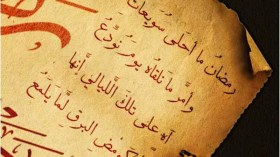 رمضان ما أحلى سويعات
وأمر ما نلقاه يوم نودع
آه على تلك الليالي أنها
ومض البرق لما يلمع